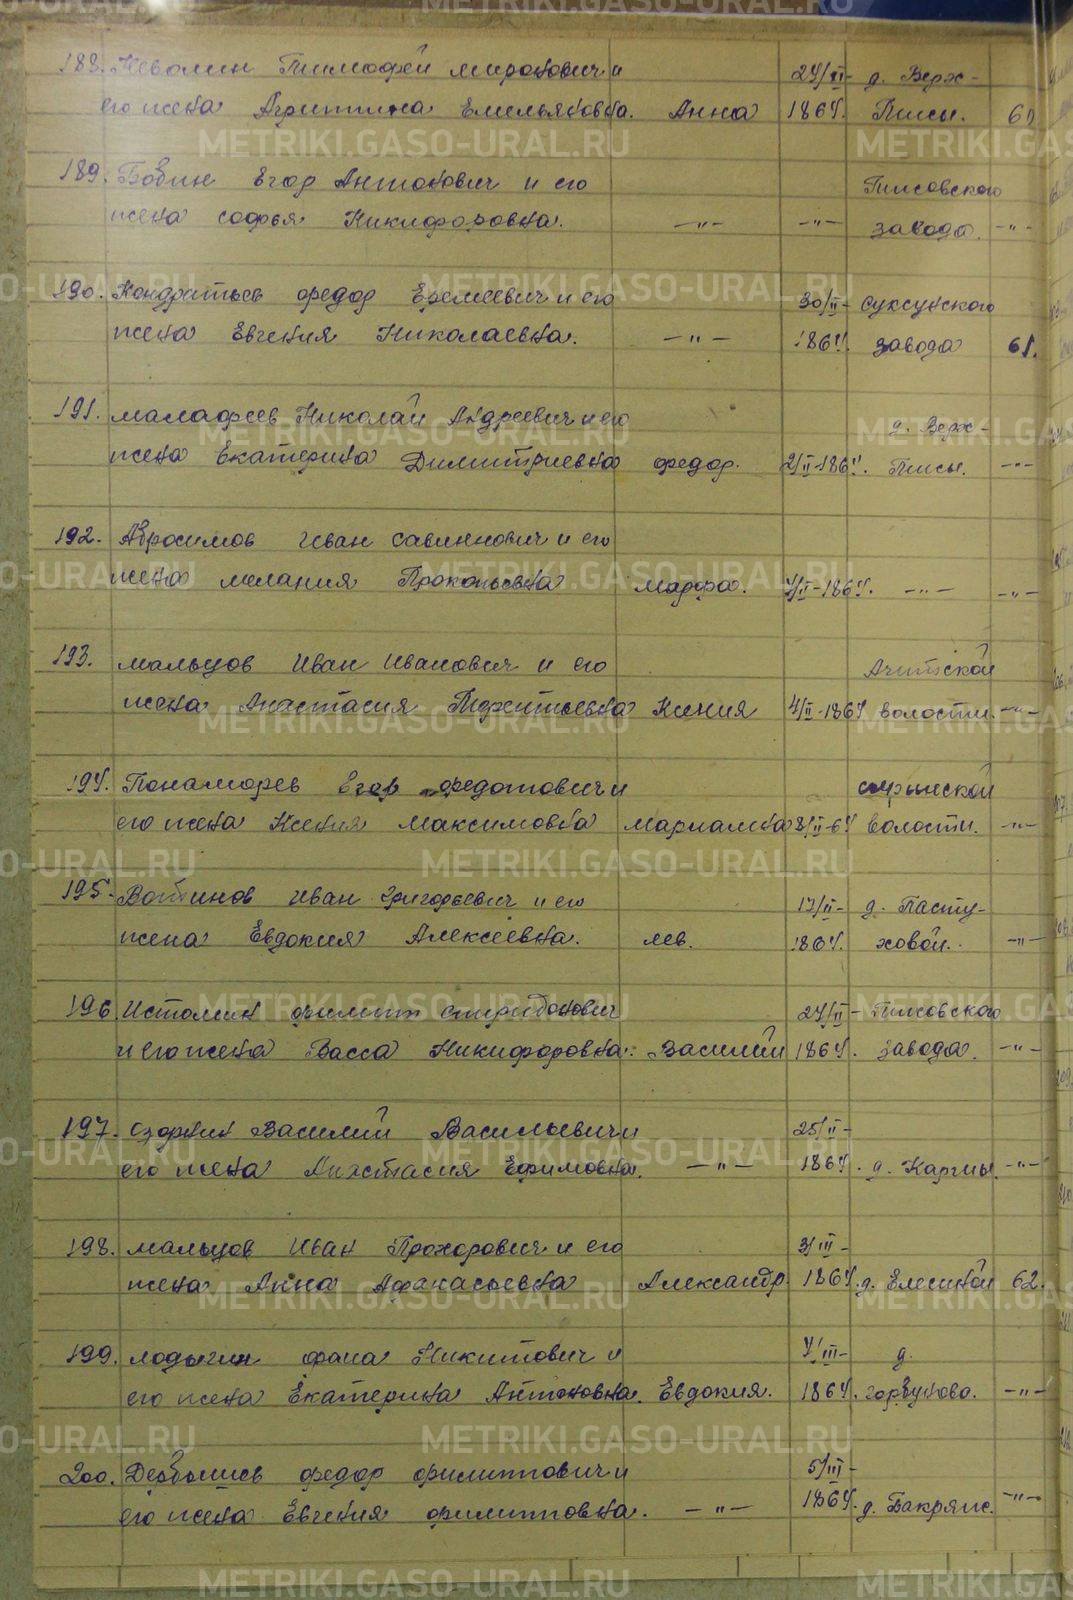 183. Неволин Тимофей Миронович и 24/II- д. Верх-
его жена Агриппина Емельяновна. Анна 1864. Тисы. 61
189. Бабин Егор Антонович и его Тисовского
жена Софья Никифоровна. -"- -"- завода. -"-
190. Кондратьев Федор Еремеевич и его 30/II- Суксунского
жена Евгения Николаевна. -"- 1864. завода 61.
191. Малафеев Николай Андреевич и его д. Верх-
жена Екатерина Димитриевна Федор. 2/II-1864. Тисы. -"-
192. Абросимов Иван Савинович и его
жена Мелания Прокопьевна Марфа. 4/II-1864. -"- -"-
193. Мальцов Иван Иванович и его Ачитской
жена Анастасия Терентьевна Ксения 4/II-1864 волости. -"-
194. Понаморев Егор Федотович и Сыринской
его жена Ксения Максимовна Мариамна 8/II-64 волости. -"-
195. Вотинов Иван Григорьевич и его 17/II- д. Пасту-
жена Евдокия Алексеевна. Лев. 1864. ховой. -"-
196. Истомин Филипп Спиридонович 24/II- Тисовского
и его жена Васса Никифоровна. Василий 1864. завода. -"-
197. Озорнин Василий Васильевич и 25/II-
его жена Анастасия Ефимовна. -"- 1864. д. Каргиы. -"-
198. Мальцов Иван Прохорович и его 3/III-
жена Анна Афанасьевна Александр. 1864. д. Елесиной 62.
199. Лодыгин Фана Никитович и 4/III- д.
его жена Екатерина Антоновна. Евдокия. 1864. Горбунова. -"-
200. Дербышев Федор Филиппович и 5/III-
его жена Евгения Филипповна. -"- 1864. д. Бакряж. -"-
METRIKI.GASO-URAL.RU